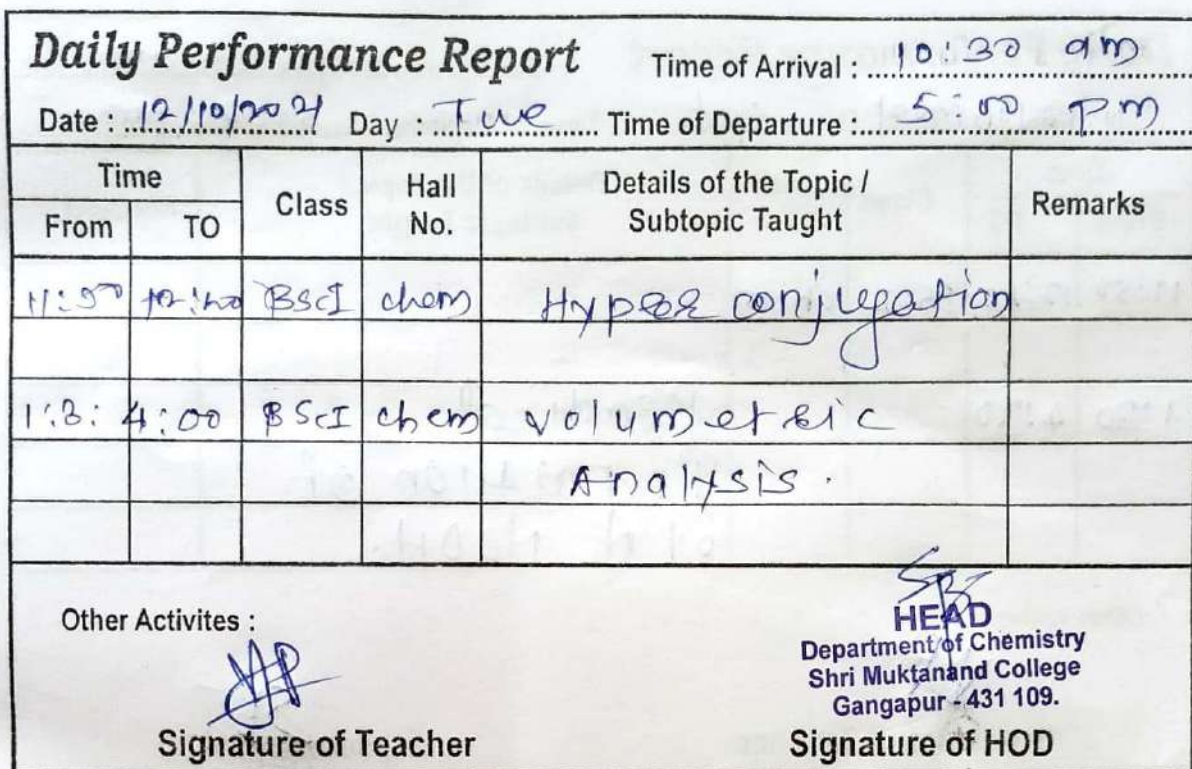 Daily Performance Report Time of Arrival : 10:30 am
Date : 12/10/2021 Day : Tue Time of Departure : 5:00 pm
Time Class Hall No. Details of the Topic / Subtopic Taught Remarks
From TO
11:50 BScI chem Hyper conjugation
1:3: 4:00 BScI chem volumetric
Analysis.
Other Activites :
HEAD
Department of Chemistry
Shri Muktanand College
Gangapur - 431 109.
Signature of Teacher Signature of HOD